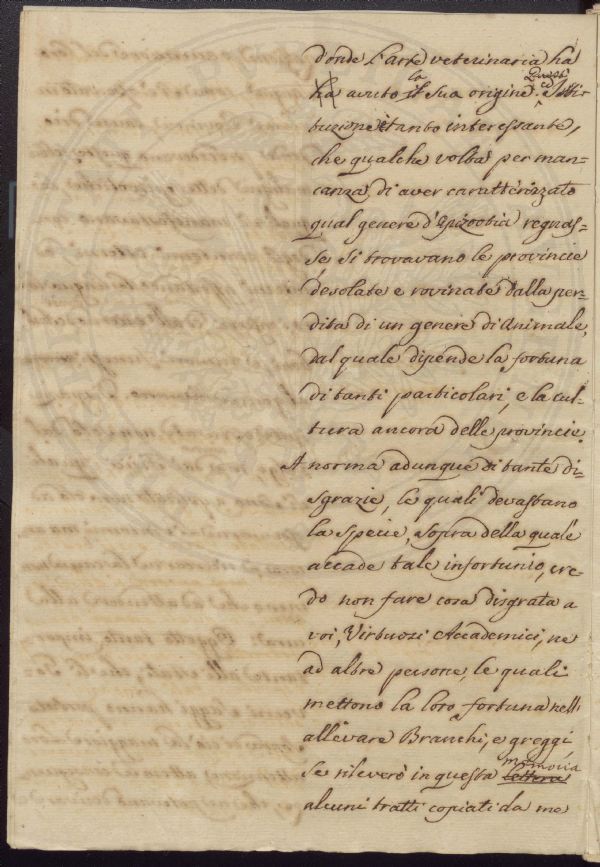 donde l'arte veterinaria ha
ha avuto la sua origine. Questa Isti-
tuzione è tanto interessante,
che qualche volta per man-
canza di aver caratterizzato
qual genere d'Epizootia regnas-
se si trovavano le provincie
desolate e rovinate dalla per-
dita di un genere di Animale,
dal quale dipende la fortuna
di tanti particolari, e la cul-
tura ancora delle provincie.
A norma adunque di tante di-
sgrazie, le quali devastano
la specie, sopra della quale
accade tale infortunio, cre-
do non fare cosa disgrata a
voi, Virtuosi Accademici, ne
ad altre persone, le quali
mettono la loro fortuna nell'
allevare Branchi, e greggi
se rileverò in questa lettera memoria
alcuni tratti copiati da me